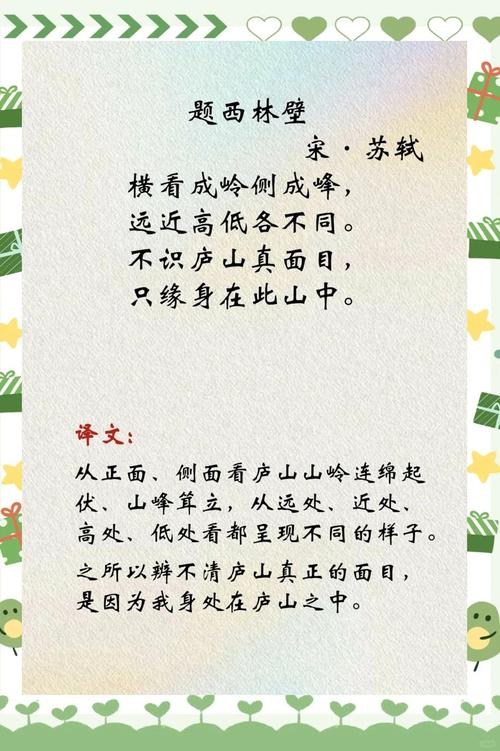 题西林壁
宋·苏轼
横看成岭侧成峰，
远近高低各不同。
不识庐山真面目，
只缘身在此山中。
译文：
从正面、侧面看庐山山岭连绵起
伏、山峰耸立，从远处、近处、
高处、低处看都呈现不同的样子。
之所以辨不清庐山真正的面目，
是因为我身处在庐山之中。